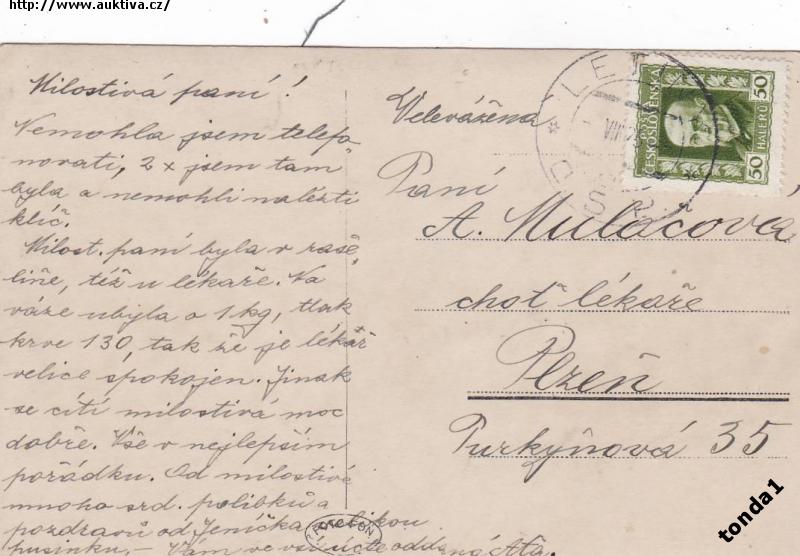 http://www.auktiva.cz/
Milostivá paní!
Nemohla jsem telefo-
novati, 2x jsem tam
byla a nemohli nalézti
klíč.
Milost. paní byla v raše-
lině, též u lékaře. Na
váze ubyla o 1 kg, tlak
krve 130, tak že je lékař
velice spokojen. Jinak
se cítí milostivá moc
dobře. Vše v nejlepším
pořádku. Od milostivé
mnoho srd. polibků a
pozdravů od Jeníčka velikou
pusinku, – Vám ve vší úctě oddaná
Velevážená
Paní
A. Mulačova
choť lékaře
Plzeň
Purkyňová 35
POŠTA
ČESKOSLOVENSKÁ
50
HALÉŘŮ
50
FOTO-FON
tonda1